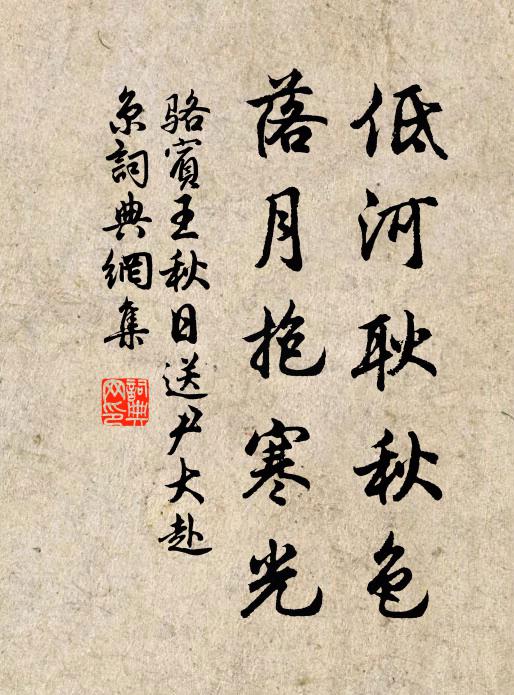 低河耿秋色
落月抱寒光
駱賓王秋日送尹大赴
京詞典網集
詞典
网印